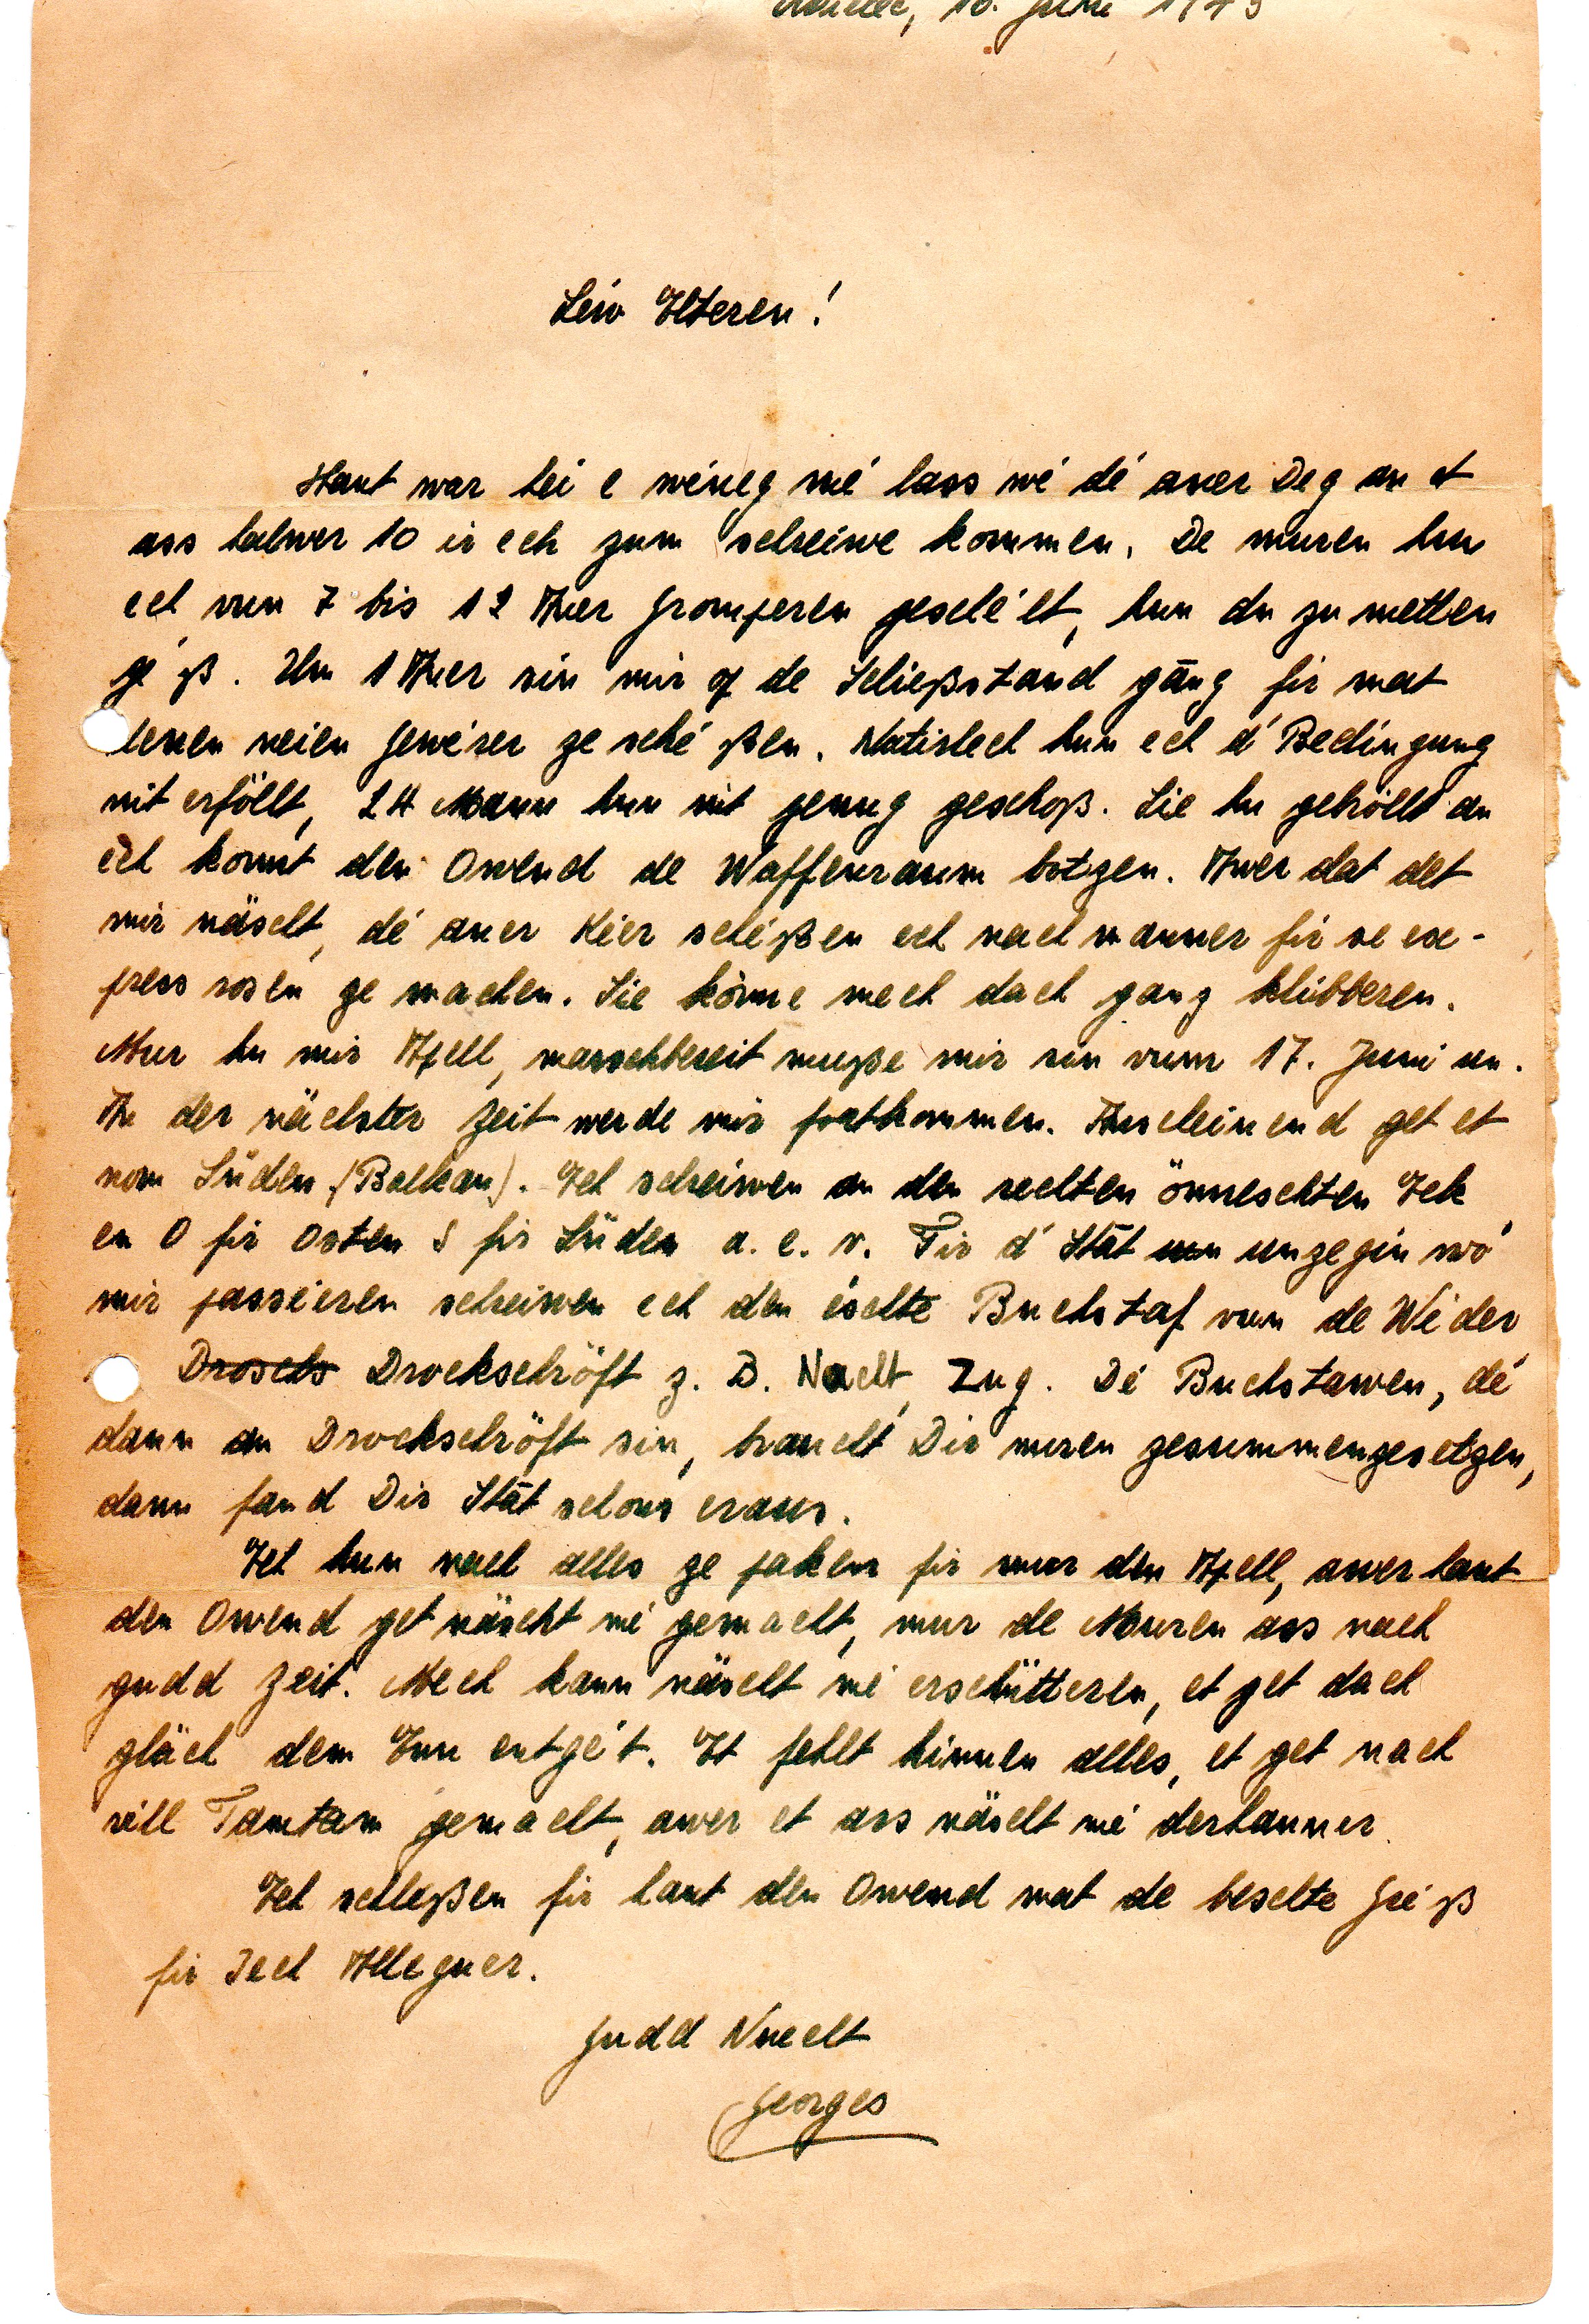 16. Juni 1943
Léiw Elteren!
Haut war héi e wéineg méi lass wéi déi aner Deg an et
ass halwer 10 ir ech zum schreiwe kommen. De muren hun
ech vun 7 bis 12 Auer Gromperen geschélt, hun du zu metten
géß. Um 1 Auer sin mir op de Schießstand gāng fir mat
denen neien Gewéirer ze schéißen. Natirlech hun ech d'Bedingung
nit erföllt, 24 Mann hun nit genug geschoß. Sie hu gebröllt an
ech konnt den Owend de Waffenraum botzen. Awer dat det
mir näscht, déi aner Kéier schéißen ech nach manner fir se ex-
press rosen ze machen. Sie könne mech dach ganz klibberen.
Mur hu mir Apell, marschbereit muße mir sin vum 17. Juni un.
An der nächster Zeit werde mir fortkommen. Anscheinend get et
nom Süden (Balkan). Ech schreiwen an den rechten önneschten Eck
en O fir Osten S fir Süden a. e. v. Fir d'Stāt unzegin wó
mir passéieren schreiwen ech den éischte Buchstaf vun de Wieder
Drosch Drockschröft z. B. Nacht, Zug. Déi Buchstawen, déi
dann an Drockschröft sin, braucht Dir nuren zesummenzesetzen,
dann fand Dir Stāt schons eraus.
Ech hun nach alles ze paken fir mur den Apell, awer haut
den Owend get näscht méi gemacht, mur de Muren ass nach
gudd Zeit. Mech kann näscht méi erschütteren, et get dach
gläch dem Enn entgéint. Et fehlt hinnen alles, et get nach
vill Tamtam gemacht, awer et ass näscht méi derhanner.
Ech schleßen fir haut den Owend mat de beschte Gréiß
fir Iech Alleguer.
Gudd Nuecht
Georges